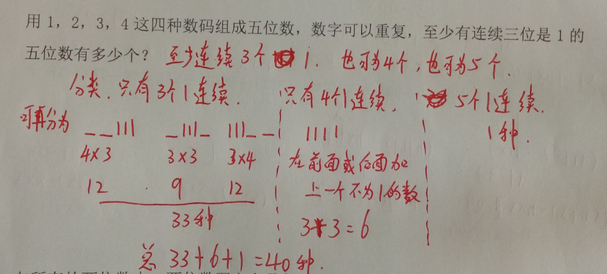 用 1，2，3，4 这四种数码组成五位数，数字可以重复，至少有连续三位是 1 的
五位数有多少个？ 至少连续3个1. 也可为4个，也可为5个.
分类. 只有3个1连续. 只有4个1连续. 5个1连续.
可再分为 _ _111 _111_ 111_ _ 1111 1种.
4×3 3×3 3×4 在前面或后面加
12 . 9 12 上一个不为1的数
33种 3+3=6
总 33+6+1=40种.